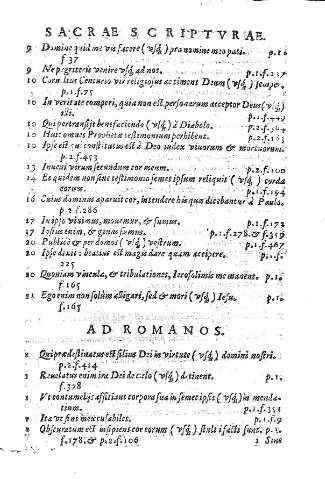 SACRAE SCRIPTVRAE.
9 Domine quid me vis facere (vsq́;) pro nomine meo pati. p.1.
f 37
9 Ne pigriteris venire vsq́; ad nos. p.1.f.237
10 Cornelius Centurio vir religiosus ac timens Deum (vsq́;) semper.
p.1.f.75
10 In veritate comperi, quia non est personarum acceptor Deus (vsq́;)
illi.
10 Qui pertransijt benefaciendo (vsq́;) à Diabolo.
10 Huic omnes Prophetæ testimonium perhibent.
10 Ipse est qui constitutus est à Deo iudex viuorum & mortuorum.
p.2.f.453
13 Inueni virum secundum cor meum. p.2.f.100
14 Et quidem non sine testimonio semet ipsum reliquit (vsq́;) corda
eorum.
16 Cuius dominus aparuit cor, intendere his quæ dicebantur à Paulo.
p.2.f.286
17 In ipso viuimus, mouemur, & sumus. p.1.f.172
17 Ipsius enim, & genus sumus. p.1.f.278.& f.349
20 Publicè & per domos (vsq́;) vestrum. p.1.f.467
20 Ipse dixit: beatius est magis dare quam accipere. p.1.f.
225
20 Quoniam vincula, & tribulationes, Ierosolimis me manent. p.1.
f 165
21 Ego enim non solùm alligari, sed & mori (vsq́;) Iesu. p.1.
f.165
AD ROMANOS.
1 Qui prædestinatus est filius Dei in virtute (vsq́;) domini nostri.
p.2.f.414
1 Reuelatur enim ira Dei de cælo (vsq́;) detinent. p.1.
f.378
1 Vt contumelijs afficiant corpora sua in semet ipsis (vsq́;) in menda-
tium. p.2.f.351
1 Ita vt sint inexcusabiles. p.1.f.9
1 Obscuratum est insipiens cor eorum (vsq́;) stulti facti sunt. p.
f.178.& p.2.f.106 1 Sine